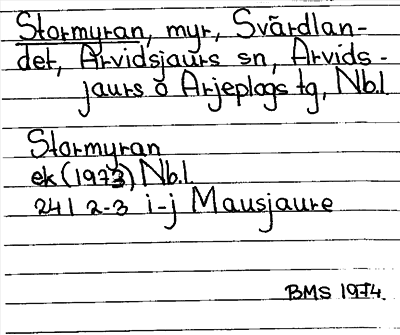 Stormyran, myr, Svärdlan-
det, Arvidsjaurs sn, Arvids-
jaurs o Arjeplogs tg, Nb.l
Stormyran
ek (1973) Nb.l.
24I 2-3 i-j Mausjaure
BMS 1974.